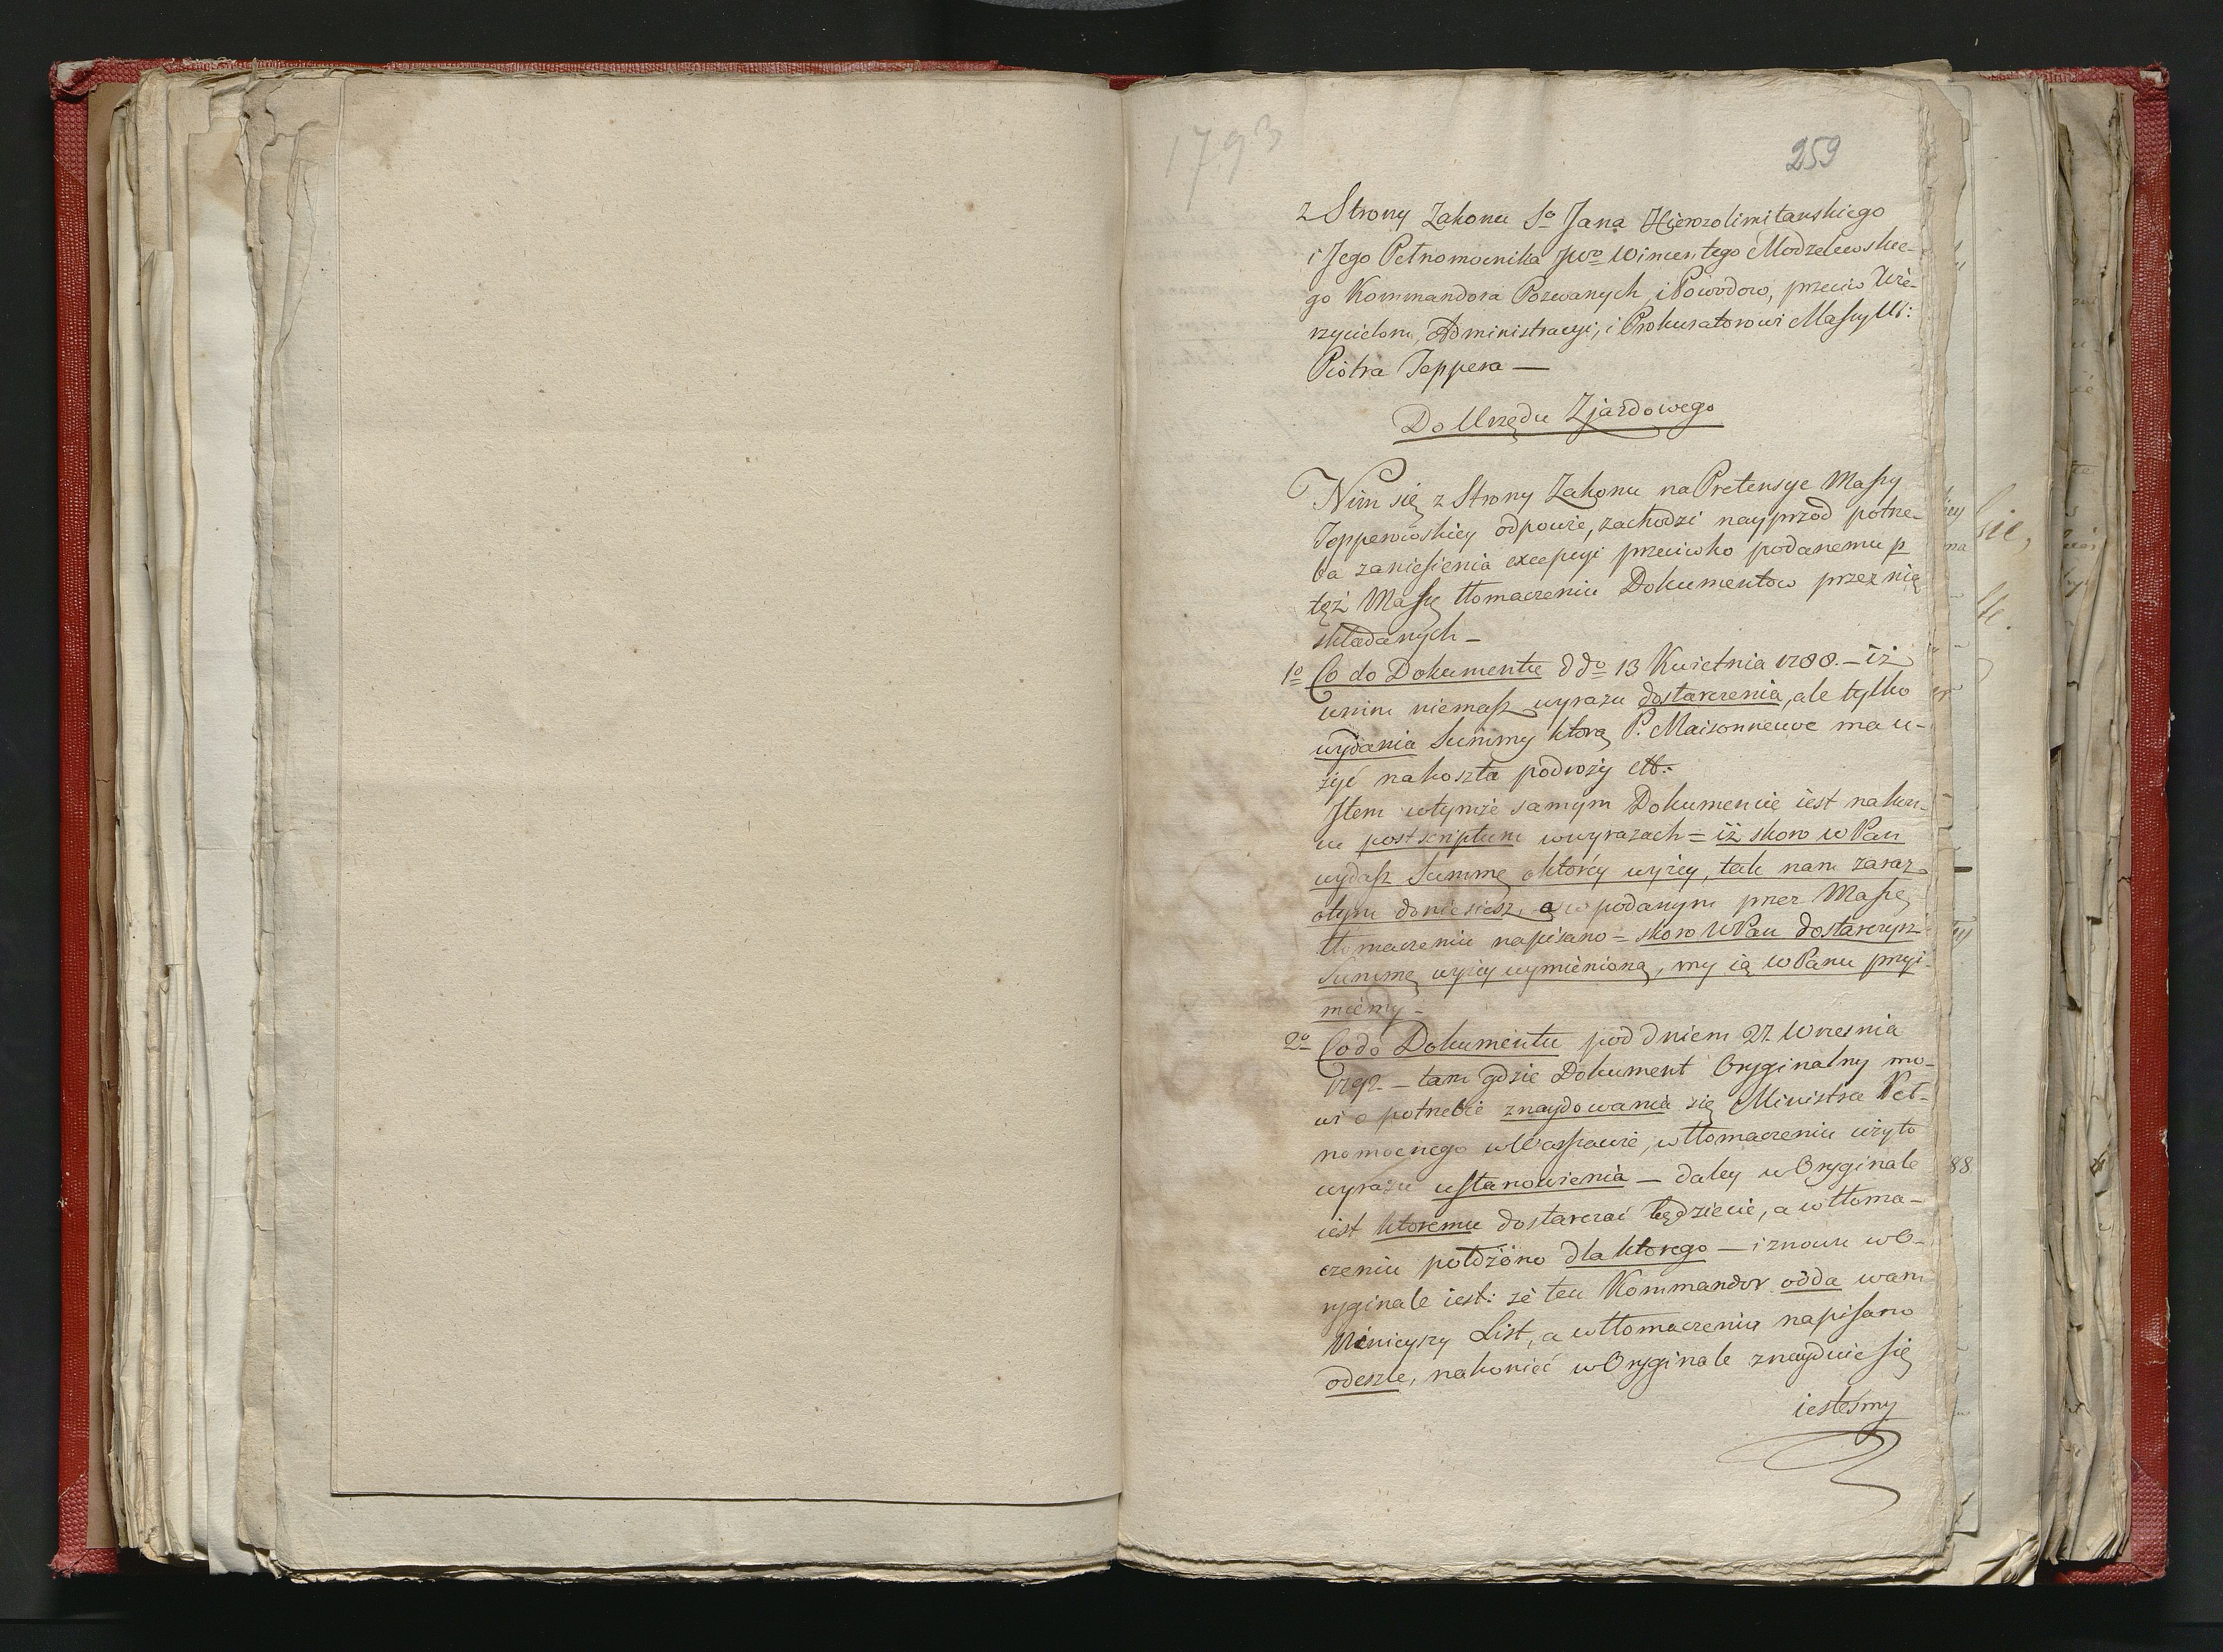 1793
259
z Strony Zakonu So Jana Hierozolimitanskiego
i Jego Pełnomocnika JWo Wincentego Modzelewskie-
go Kommandora Pozwanych, i Powodow, przeciw Wie-
rzycielom, Administracyi, i Prokuratorowi Massy Ur:
Piotra Teppera —
Do Urzędu Zjazdowego
Nim się z Strony Zakonu na Pretensye Massy
Tepperowskiey odpowie, zachodzi nayprzod potrze-
ba zaniesienia excepcyi przeciwko podanemu p
też Massę tłomaczeniu Dokumentow przez nię
składanych —
1o Co do Dokumentu ddo 13 Kwietnia 1788. — iż
w nim niemasz wyrazu dostarczenia, ale tylko
wydania Summy ktorą P. Maisonneuve ma u-
żyć na koszta podroży ett:
Item w tymże samym Dokumencie iest na koń-
cu postscriptum w wyrazach = iż skoro w Pan
wydasz Summę o ktorey wyżey, tak nam zaraz
o tym doniesiesz, a w podanym przez Massę
tłomaczeniu napisano = skoro WPan dostarczysz
Summę wyżey wymienioną, my ią w Panu przyi-
miemy —
2o Co do Dokumentu pod dniem 27 Wrzesnia
1792. — tam gdzie Dokument Oryginalny mo-
wi o potrzebie znaydowania się Ministra Peł-
nomocnego w Warszawie, w tłomaczeniu użyto
wyrazu ustanowienia — daley w Oryginale
iest ktoremu dostarczać będziecie, a w tłoma-
czeniu położono dla ktorego — i znowu w O-
ryginale iest: że ten Kommandor odda wam
Ninieyszy List, a w tłomaczeniu napisano
odeszle, nakonieć w Oryginale znayduie się
iesteśmy